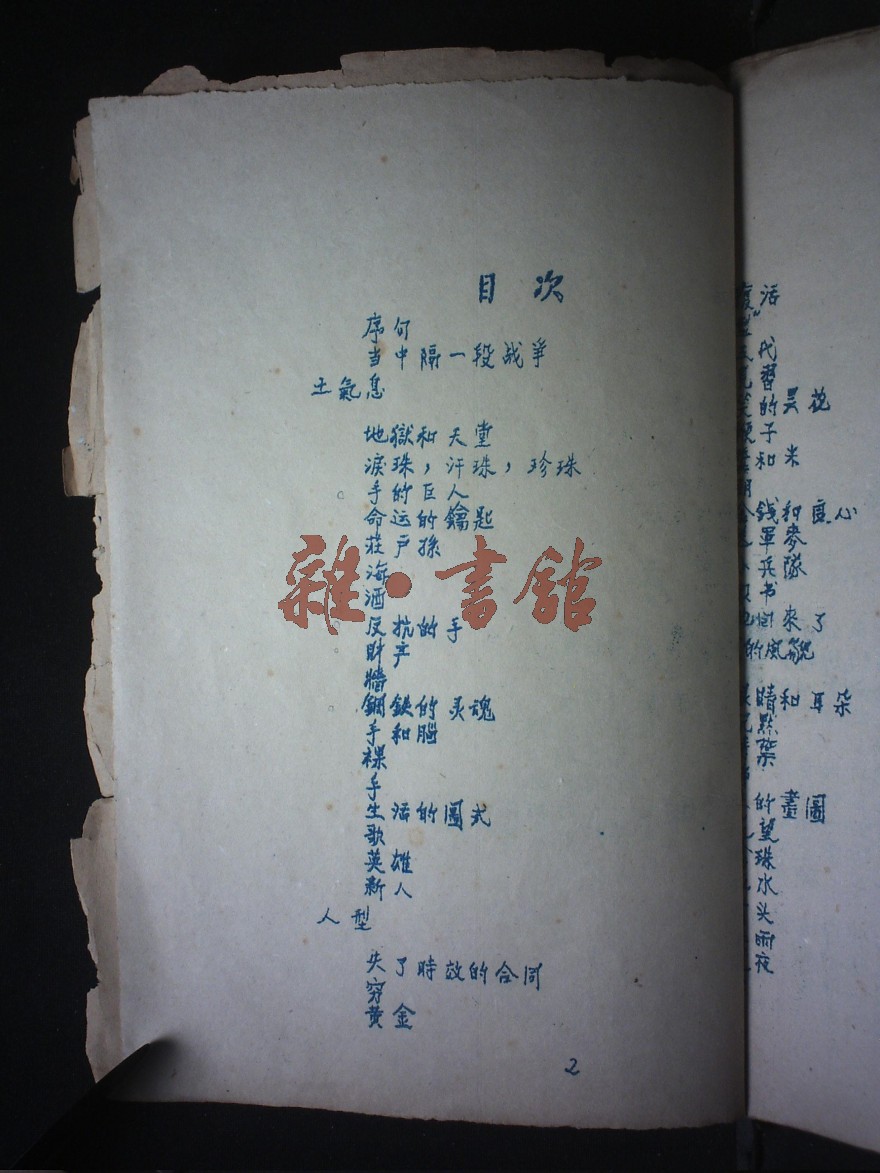 目次
序句
当中隔一段战爭
土氣息
地獄和天堂
淚珠，汗珠，珍珠
手的巨人
命运的鑰匙
莊户孫
海
酒
反抗的手
財产
牆
鋼鉄的灵魂
手和腦
裸
手
生活的圖式
歌
英雄
新人
人型
失了時效的合同
穷
黄金
2
活
代
習
的曇花
子
和米
钱和良心
軍麥
兵隊
书
來了
的風貌
睛和耳朵
的畫圖
望
珠
水
头
雨
夜
雜·書館